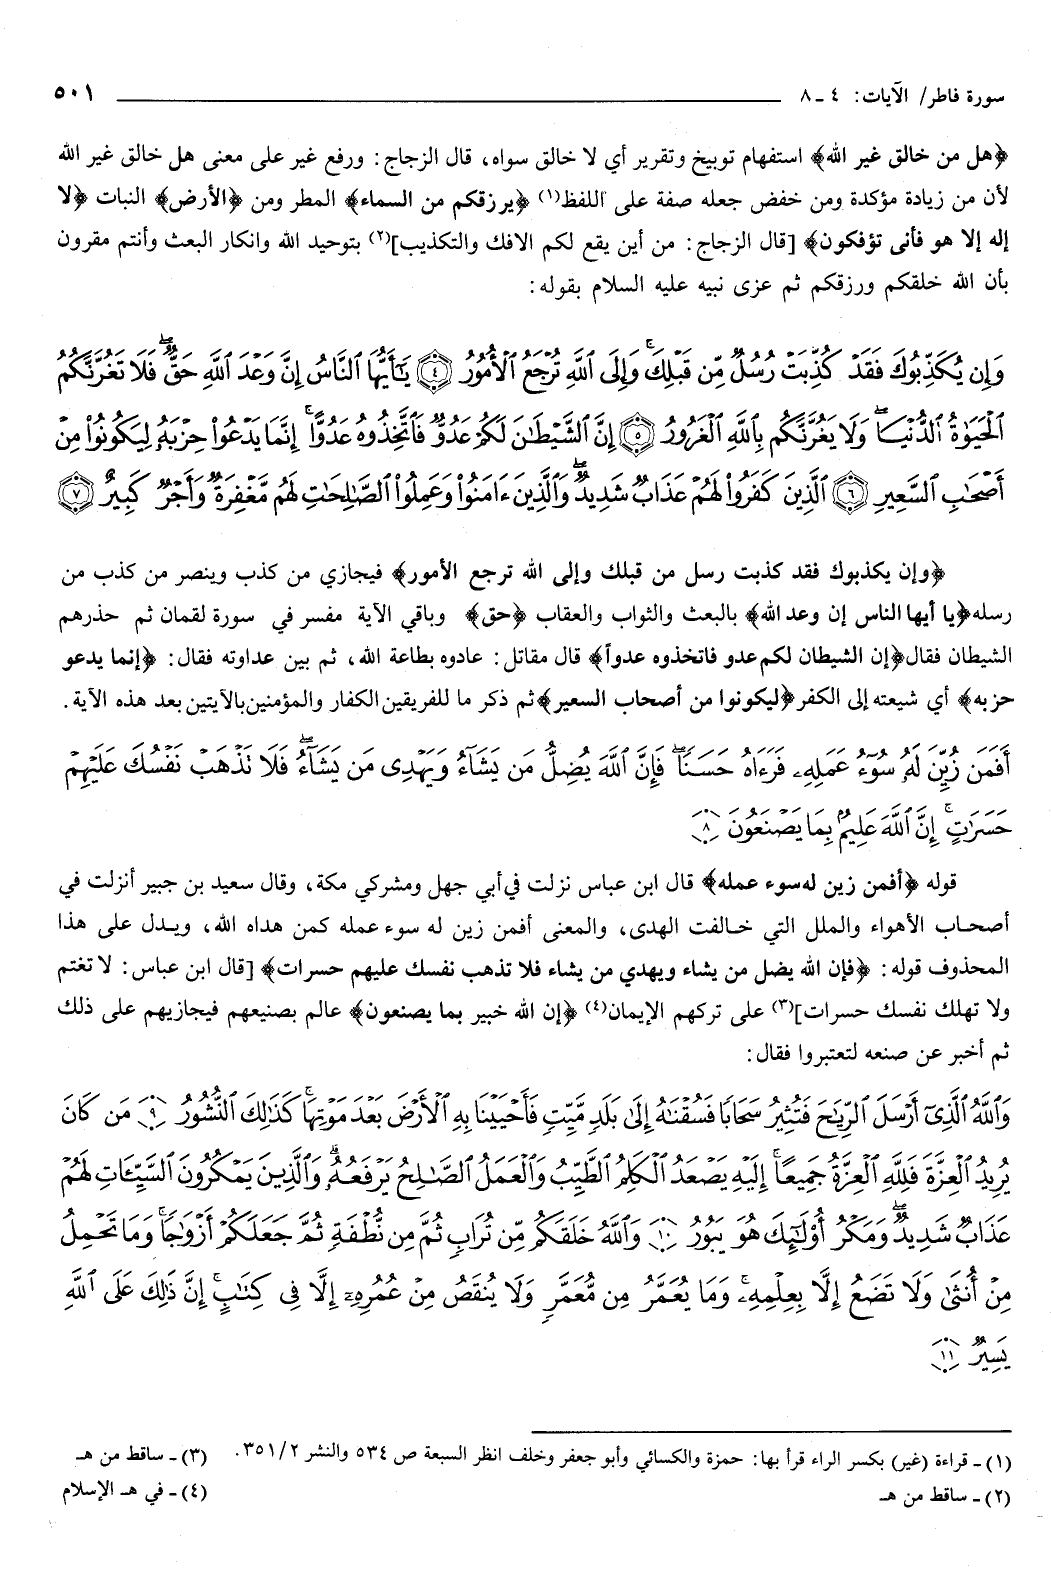 سورة فاطر/ الآيات: ٤ ـ ٨ ٥٠١
﴿هل من خالق غير الله﴾ استفهام توبيخ وتقرير أي لا خالق سواه، قال الزجاج: ورفع غير على معنى هل خالق غير الله
لأن من زيادة مؤكدة ومن خفض جعله صفة على اللفظ(١) ﴿يرزقكم من السماء﴾ المطر ومن ﴿الأرض﴾ النبات ﴿لا
إله إلا هو فأنى تؤفكون﴾ [قال الزجاج: من أين يقع لكم الافك والتكذيب](٢) بتوحيد الله وانكار البعث وأنتم مقرون
بأن الله خلقكم ورزقكم ثم عزى نبيه عليه السلام بقوله:
وَإِن يُكَذِّبُوكَ فَقَدْ كُذِّبَتْ رُسُلٌ مِّن قَبْلِكَ ۚ وَإِلَى ٱللَّهِ تُرْجَعُ ٱلْأُمُورُ ﴿٤﴾ يَـٰٓأَيُّهَا ٱلنَّاسُ إِنَّ وَعْدَ ٱللَّهِ حَقٌّ ۖ فَلَا تَغُرَّنَّكُمُ
ٱلْحَيَوٰةُ ٱلدُّنْيَا ۖ وَلَا يَغُرَّنَّكُم بِٱللَّهِ ٱلْغَرُورُ ﴿٥﴾ إِنَّ ٱلشَّيْطَـٰنَ لَكُمْ عَدُوٌّ فَٱتَّخِذُوهُ عَدُوًّا ۚ إِنَّمَا يَدْعُوا۟ حِزْبَهُۥ لِيَكُونُوا۟ مِنْ
أَصْحَـٰبِ ٱلسَّعِيرِ ﴿٦﴾ ٱلَّذِينَ كَفَرُوا۟ لَهُمْ عَذَابٌ شَدِيدٌ ۖ وَٱلَّذِينَ ءَامَنُوا۟ وَعَمِلُوا۟ ٱلصَّـٰلِحَـٰتِ لَهُم مَّغْفِرَةٌ وَأَجْرٌ كَبِيرٌ ﴿٧﴾
﴿وإن يكذبوك فقد كذبت رسل من قبلك وإلى الله ترجع الأمور﴾ فيجازي من كذب وينصر من كذب من
رسله ﴿يا أيها الناس إن وعد الله﴾ بالبعث والثواب والعقاب ﴿حق﴾ وباقي الآية مفسر في سورة لقمان ثم حذرهم
الشيطان فقال ﴿إن الشيطان لكم عدو فاتخذوه عدواً﴾ قال مقاتل: عادوه بطاعة الله، ثم بين عداوته فقال: ﴿إنما يدعو
حزبه﴾ أي شيعته إلى الكفر ﴿ليكونوا من أصحاب السعير﴾ ثم ذكر ما للفريقين الكفار والمؤمنين بالآيتين بعد هذه الآية.
أَفَمَن زُيِّنَ لَهُۥ سُوٓءُ عَمَلِهِۦ فَرَءَاهُ حَسَنًا ۖ فَإِنَّ ٱللَّهَ يُضِلُّ مَن يَشَآءُ وَيَهْدِى مَن يَشَآءُ ۖ فَلَا تَذْهَبْ نَفْسُكَ عَلَيْهِمْ
حَسَرَٰتٍ ۚ إِنَّ ٱللَّهَ عَلِيمٌۢ بِمَا يَصْنَعُونَ ﴿٨﴾
قوله ﴿أفمن زين له سوء عمله﴾ قال ابن عباس نزلت في أبي جهل ومشركي مكة، وقال سعيد بن جبير أنزلت في
أصحاب الأهواء والملل التي خالفت الهدى، والمعنى أفمن زين له سوء عمله كمن هداه الله، ويدل على هذا
المحذوف قوله: ﴿فإن الله يضل من يشاء ويهدي من يشاء فلا تذهب نفسك عليهم حسرات﴾ [قال ابن عباس: لا تغتم
ولا تهلك نفسك حسرات](٣) على تركهم الإيمان(٤) ﴿إن الله خبير بما يصنعون﴾ عالم بصنيعهم فيجازيهم على ذلك
ثم أخبر عن صنعه لتعتبروا فقال:
وَٱللَّهُ ٱلَّذِىٓ أَرْسَلَ ٱلرِّيَـٰحَ فَتُثِيرُ سَحَابًا فَسُقْنَـٰهُ إِلَىٰ بَلَدٍ مَّيِّتٍ فَأَحْيَيْنَا بِهِ ٱلْأَرْضَ بَعْدَ مَوْتِهَا ۚ كَذَٰلِكَ ٱلنُّشُورُ ﴿٩﴾ مَن كَانَ
يُرِيدُ ٱلْعِزَّةَ فَلِلَّهِ ٱلْعِزَّةُ جَمِيعًا ۚ إِلَيْهِ يَصْعَدُ ٱلْكَلِمُ ٱلطَّيِّبُ وَٱلْعَمَلُ ٱلصَّـٰلِحُ يَرْفَعُهُۥ ۚ وَٱلَّذِينَ يَمْكُرُونَ ٱلسَّيِّـَٔاتِ لَهُمْ
عَذَابٌ شَدِيدٌ ۖ وَمَكْرُ أُو۟لَـٰٓئِكَ هُوَ يَبُورُ ﴿١٠﴾ وَٱللَّهُ خَلَقَكُم مِّن تُرَابٍ ثُمَّ مِن نُّطْفَةٍ ثُمَّ جَعَلَكُمْ أَزْوَٰجًا ۚ وَمَا تَحْمِلُ
مِنْ أُنثَىٰ وَلَا تَضَعُ إِلَّا بِعِلْمِهِۦ ۚ وَمَا يُعَمَّرُ مِن مُّعَمَّرٍ وَلَا يُنقَصُ مِنْ عُمُرِهِۦٓ إِلَّا فِى كِتَـٰبٍ ۚ إِنَّ ذَٰلِكَ عَلَى ٱللَّهِ
يَسِيرٌ ﴿١١﴾
(١) ـ قراءة (غير) بكسر الراء قرأ بها: حمزة والكسائي وأبو جعفر وخلف انظر السبعة ص ٥٣٤ والنشر ٣٥١/٢.
(٢) ـ ساقط من هـ
(٣) ـ ساقط من هـ
(٤) ـ في هـ الإسلام